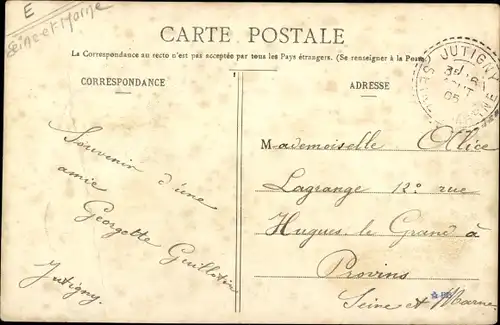 E
Seine-et-Marne
CARTE POSTALE
La Correspondance au recto n'est pas acceptée par tous les Pays étrangers. (Se renseigner à la Poste)
CORRESPONDANCE
ADRESSE
JUTIGNY
SEINE ET MARNE
AOUT
05
Souvenir d'une
amie
Georgette
Jutigny.
Mademoiselle Alice
Lagrange 12º rue
Hugues le Grand à
Provins
Seine et Marne